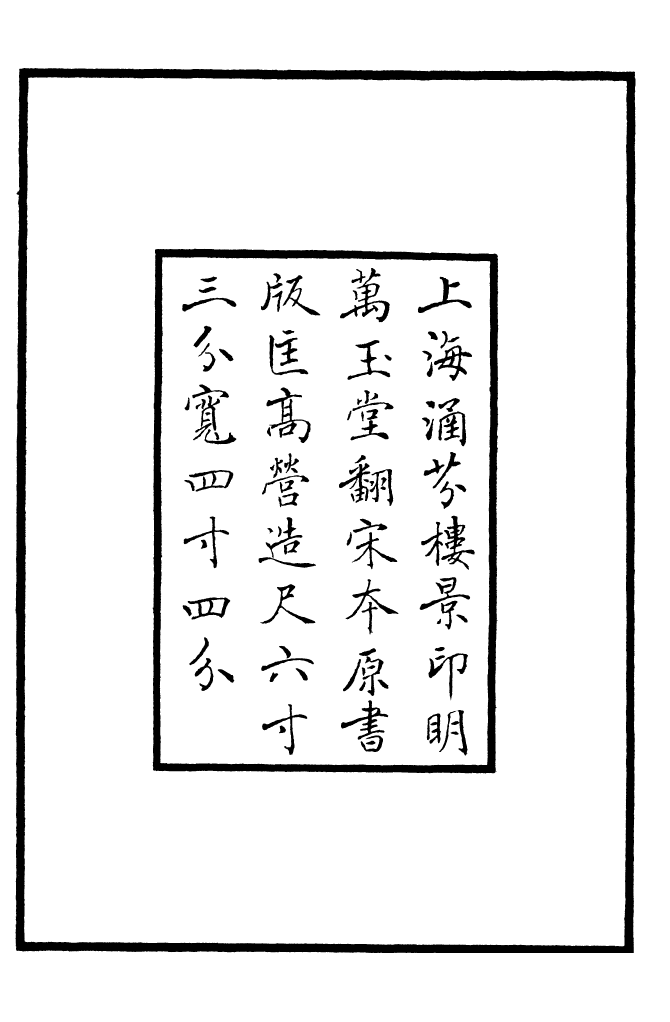 上海涵芬樓景印明
萬玉堂翻宋本原書
版匡高營造尺六寸
三分寬四寸四分